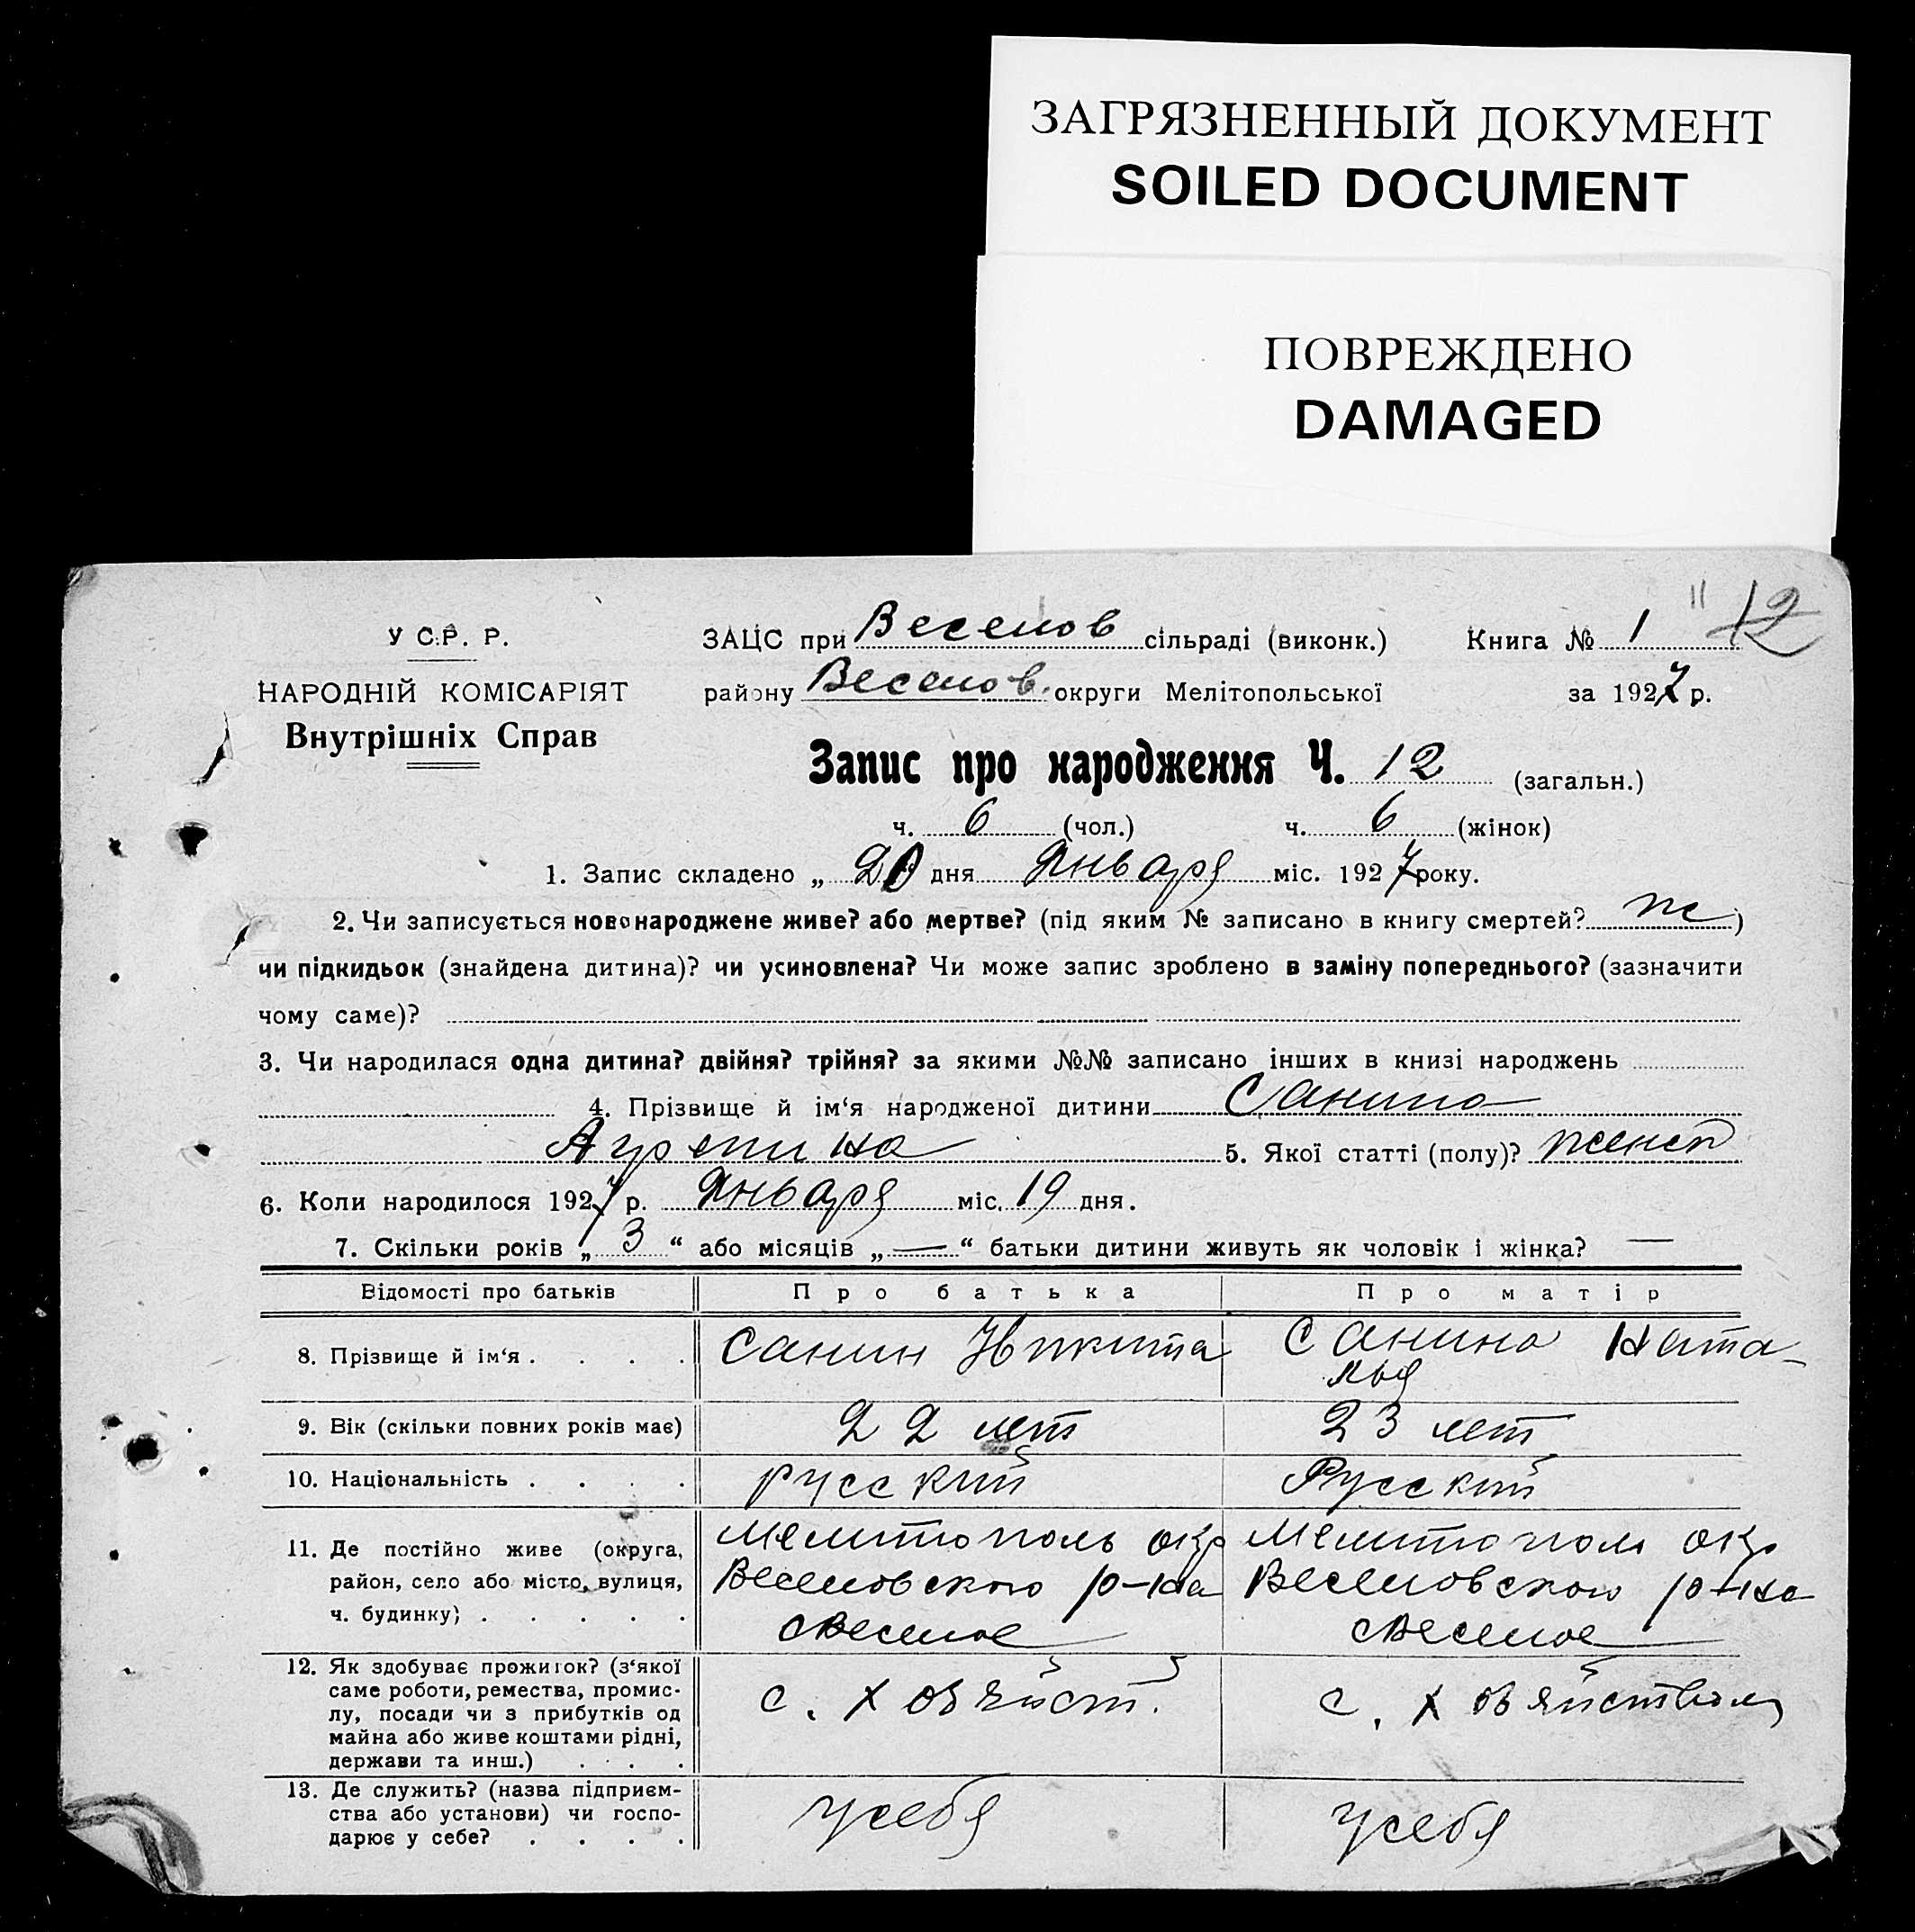 ЗАГРЯЗНЕННЫЙ ДОКУМЕНТ
SOILED DOCUMENT
ПОВРЕЖДЕНО
DAMAGED
11 12
У С.Р. Р.
НАРОДНІЙ КОМІСАРІЯТ
Внутрішніх Справ
ЗАЦС при Веселов сільраді (виконк.) Книга № 1
району Веселов. округи Мелітопольської за 1927 р.
Запис про народження Ч. 12 (загальн.)
ч. 6 (чол.) ч. 6 (жінок)
1. Запис складено „ 20 дня Января міс. 1927 року.
2. Чи записується новонароджене живе? або мертве? (під яким № записано в книгу смертей? )
чи підкидьок (знайдена дитина)? чи усиновлена? Чи може запис зроблено в заміну попереднього? (зазначити
чому саме)?
3. Чи народилася одна дитина? двійня? трійня? за якими №№ записано інших в книзі народжень
4. Прізвище й ім‘я народженої дитини Санина
Агрепина 5. Якої статті (полу)? женск
6. Коли народилося 1927 р. Января міс. 19 дня.
7. Скільки років „ 3 “ або місяців „ — “ батьки дитини живуть як чоловік і жінка? —
Відомості про батьків Про батька Про матір
8. Прізвище й ім‘я . . . . Санин Никита Санина Ната-
лья
9. Вік (скільки повних років має) 22 лет 23 лет
10. Національність . . . . русский Русский
11. Де постійно живе (округа, Мелитополь окр Мелитополь окр
район, село або місто, вулиця, Веселовского р-на Веселовского р-на
ч. будинку) . . . . . с Веселое с Веселое
12. Як здобуває прожиток? (з‘якої
саме роботи, ремества, промис- с. хозяйст. с. хозяйством
лу, посади чи з прибутків од
майна або живе коштами рідні,
держави та инш.) . . .
13. Де служить? (назва підприєм-
ства або установи) чи госпо- у себя у себя
дарює у себе? . . . .